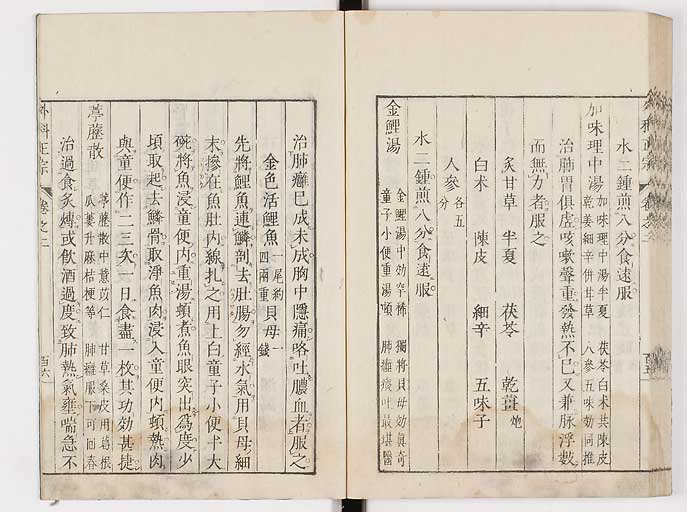 水二鍾煎八分食遠服
加味理中湯 加味理中湯半夏 茯苓白术共陳皮
乾姜細辛併甘草 人參五味効同推
治肺胃俱虛咳嗽聲重發熱不已又兼脉浮數
而無力者服之
炙甘草 半夏 茯苓 乾薑炮
白术 陳皮 細辛 五味子
人參各五分
水二鍾煎八分食遠服
金鯉湯 金鯉湯中効罕稀 獨將貝母効眞奇
童子小便重湯頓 肺癰痰吐最堪醫
治肺癰已成未成胸中隱痛咯吐膿血者服之
金色活鯉魚一尾約四兩重 貝母一錢
先將鯉魚連鱗剖去肚腸勿經水氣用貝母細
末摻在魚肚內線扎之用上白童子小便半大
碗將魚浸童便內重湯頓煮魚眼突出爲度少
頃取起去鱗骨取淨魚肉浸入童便內頓熱肉
與童便作二三次一日食盡一枚其功効甚捷
葶藶散 葶藶散中薏苡仁 甘草桑皮用葛根
瓜蔞升麻桔梗等 肺癰服下可回春
治過食炙煿或飲酒過度致肺熱氣壅喘急不
外科正宗 卷之二 百六